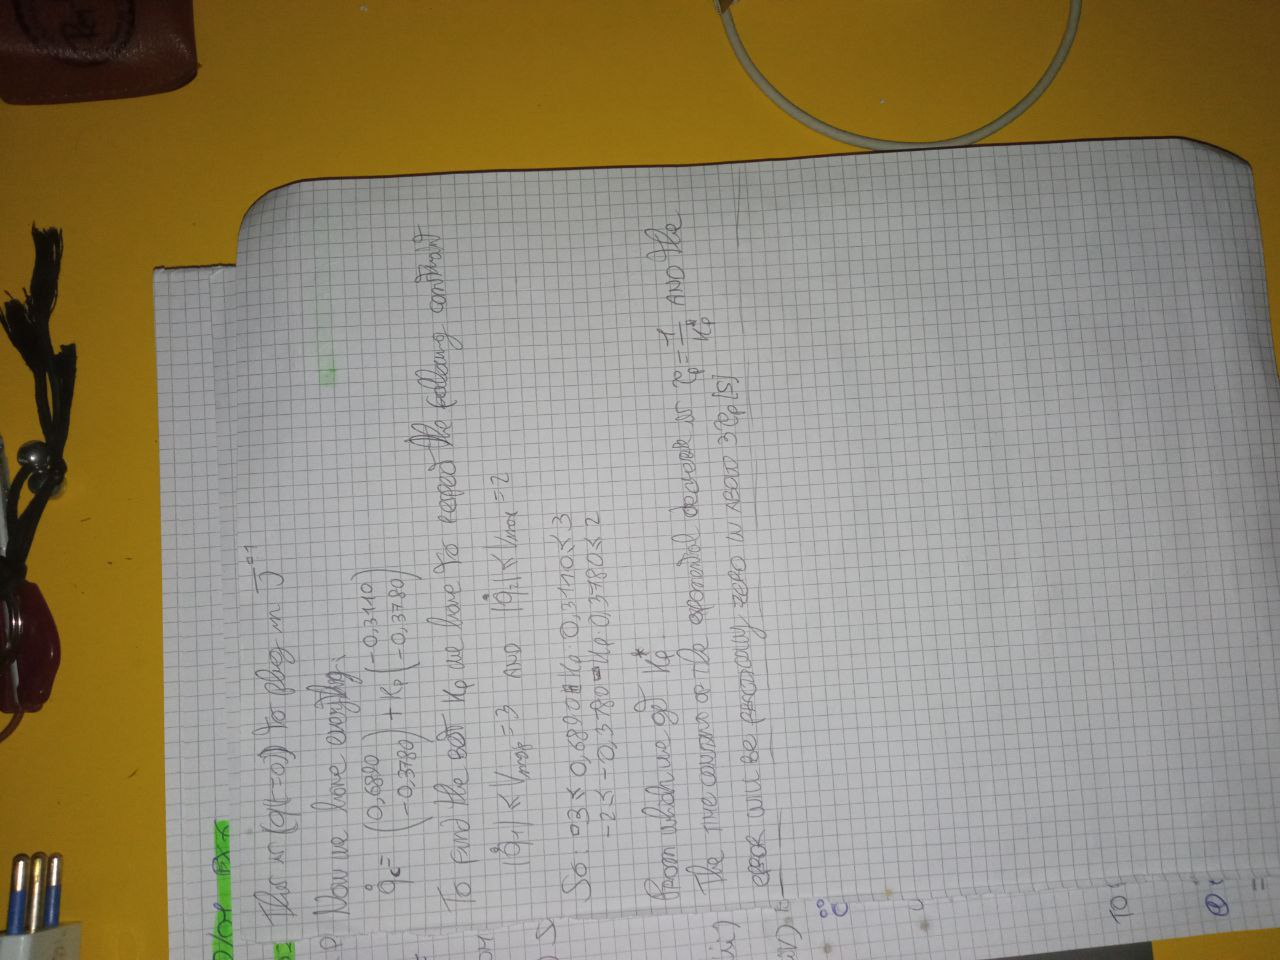 This is (q(t=0)) to plug in J^-1
Now we have everything.
q̇c = (0,6890 -0,3780) + Kp (-0,3110 -0,3780)
To find the best Kp we have to respect the following constraint
|q̇1| ≤ Vmax = 3 AND |q̇2| ≤ Vmax = 2
So: -3 ≤ 0,6890 - Kp · 0,3110 ≤ 3
-2 ≤ -0,3780 - Kp 0,3780 ≤ 2
From which we get Kp*.
The time constant of the exponential decrease is τp = 1/Kp* AND the
error will be practically zero in about 3τp [s]